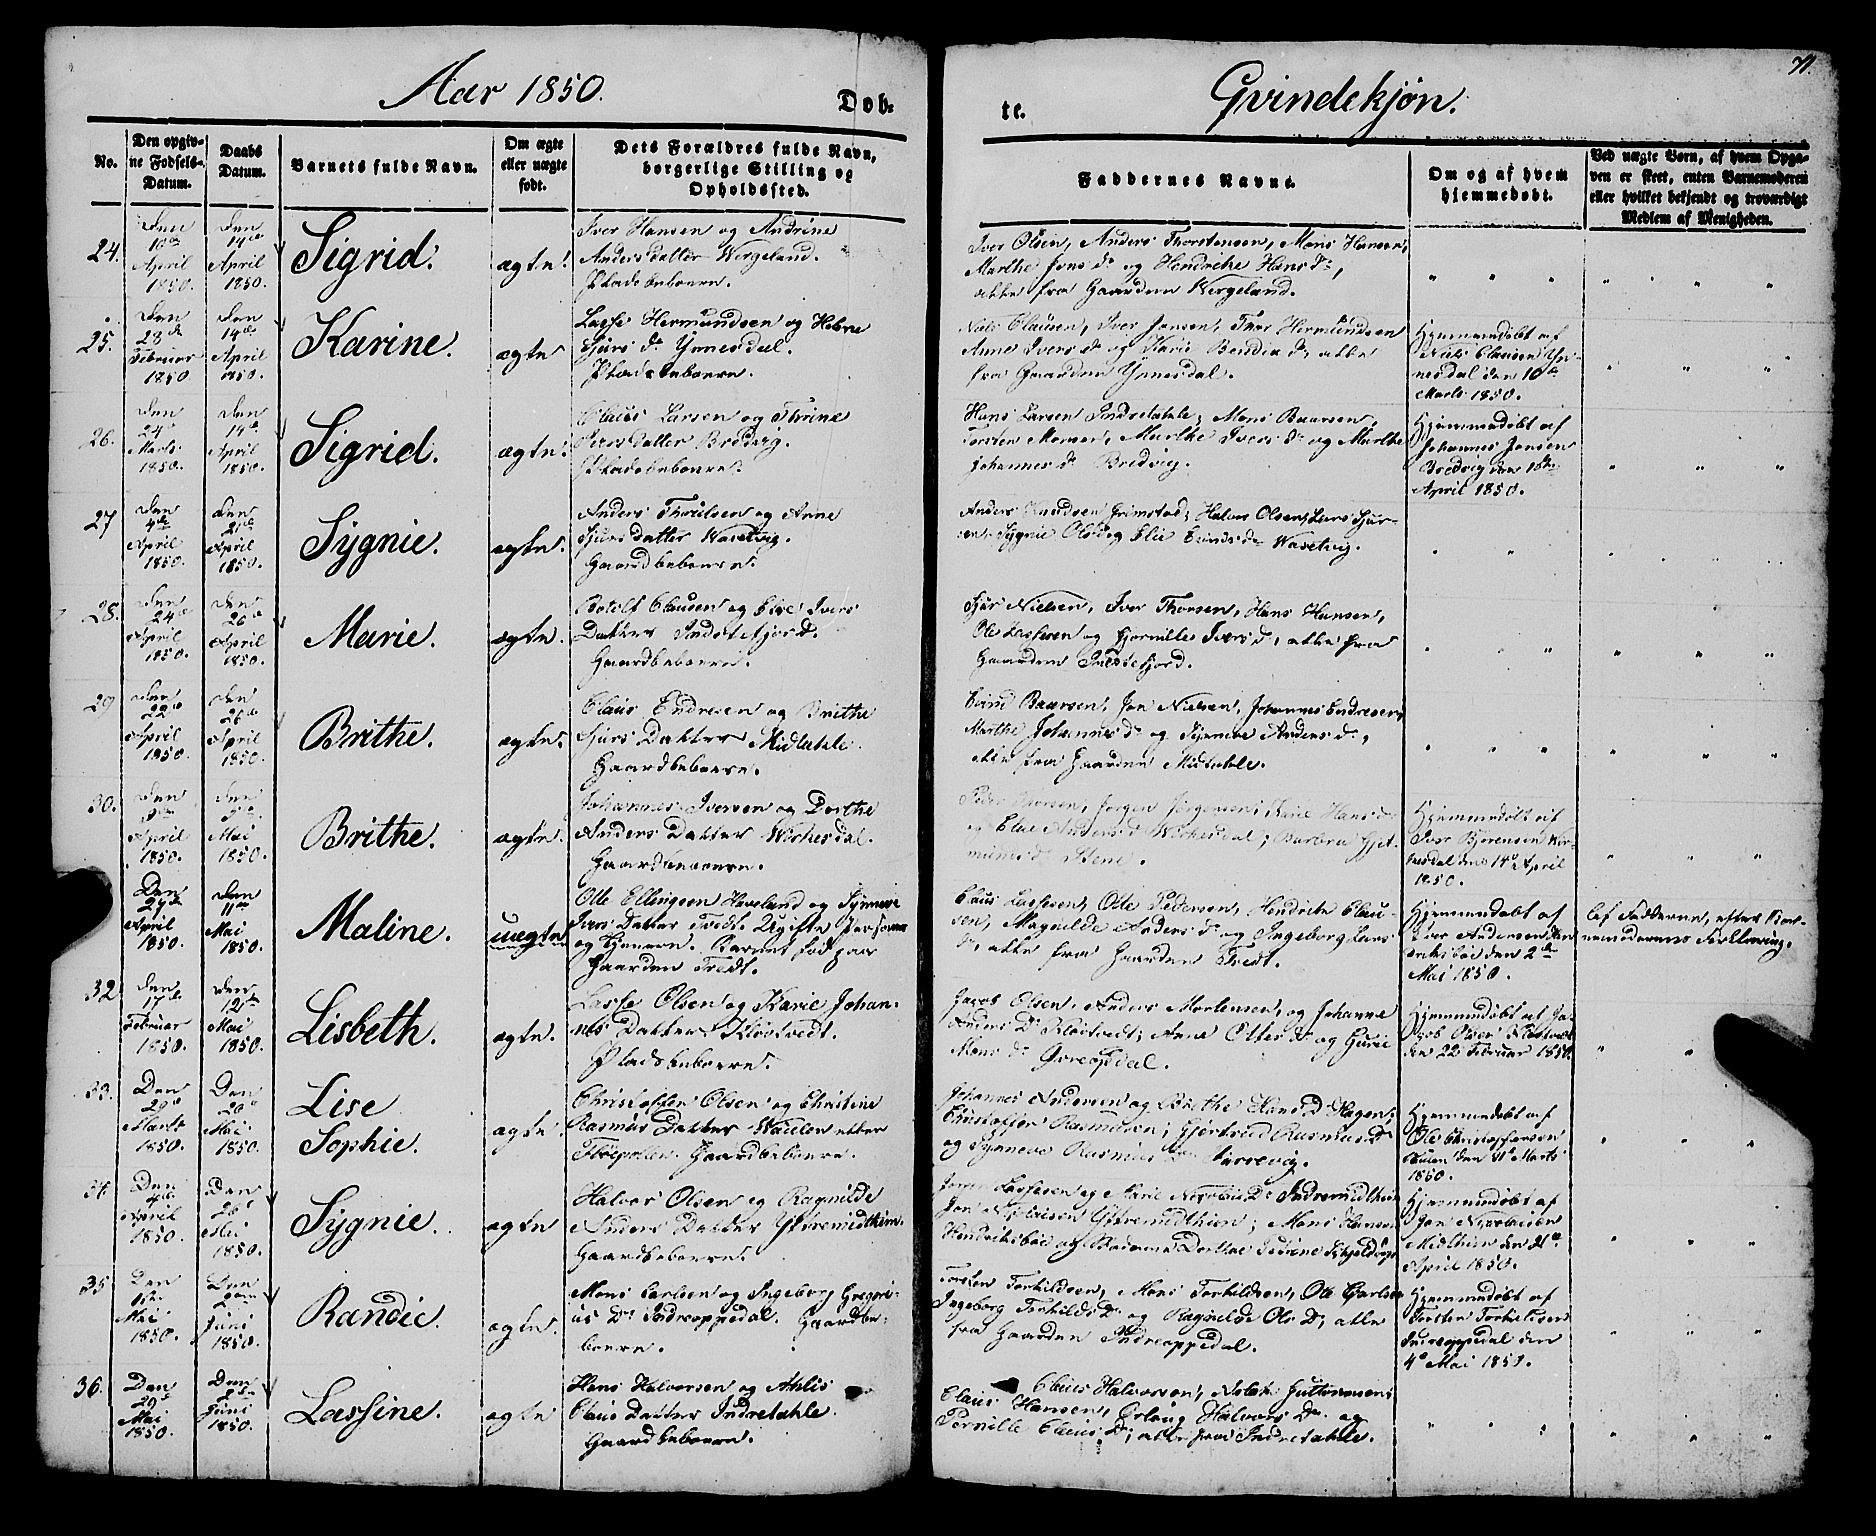 Aar 1850.
Døb-
te.
Qvindekjøn.
71.
No.
Den opgiv-
ne Fødsels-
Datum.
Daabs
Datum.
Barnets fulde Navn.
Om ægte
eller uægte
født.
Dets Forældres fulde Navn,
borgerlige Stilling og
Opholdssted.
Faddernes Navne.
Om og af hvem
hjemmedøbt.
Ved uægte Børn, af hvem Opga-
ven er skeet, enten Barnemoderen
eller hvilket bekjendt og troværdigt
Medlem af Menigheden.
24.
Den
10de
April
1850.
Den
14de
April
1850.
Sigrid.
ægte.
Iver Hansen og Andrine
Andersdatter Wergeland.
Pladsbeboere.
Iver Olsen, Anders Thorstensen, Mons Hansen,
Marthe Jons Dr og Hendrikke Hans Dr,
alle fra Gaarden Wergeland.
25.
Den
23de
Februar
1850
Den
14de
April
1850.
Karine.
ægte
Lasse Hermundsen og Helene
Sjurs Dr Ynnesdal.
Pladsbeboere.
Niels Clausen, Iver Jonsen, Thor Hermundsen
Anne Ivers Dr og Karie Bendix Dr alle
fra Gaarden Ynnesdal.
Hjemmedøbt af
Niels Clausen Yn-
nesdal den 10de
Marts 1850.
26.
Den
24de
Marts
1850.
Den
14de
April
1850.
Sigrid.
ægte.
Claus Larsen og Thrine
Iversdatter Bredvig.
Pladsbeboere.
Hans Larsen Indretahle, Mons Baarsen,
Torsten Monsen, Marthe Ivers Dr og Marthe
Johannes Dr Bredvig.
Hjemmedøbt af
Johannes Jonsen
Bredvig den 1ste
April 1850.
27
Den
4de
April
1850.
Den
21de
April
1850.
Sygnie.
ægte.
Anders Throelsen og Anne
Sjursdatter Wasetvig.
Gaardbeboere.
Anders Knudsen Grimstad, Halvor Olsen, Lars Sjur-
sen, Sygnie Ols Dr og Elie Eivinds Dr Wasetvig.
28.
Den
24de
April
1850
Den
26de
April
1850.
Marie.
ægte.
Botolf Clausen og Elie Ivers
Datter Indstefjord.
Gaardbeboere.
Sjur Nielsen, Iver Thorsen, Hans Hansen,
Ole Lassesen og Pernille Ivers Dr, alle fra
Gaarden Indstefjord.
29
Den
22de
April
1850.
Den
26de
April
1850.
Brithe.
ægte.
Claus Endresen og Brithe
Sjurs Datter Midtahle.
Gaardbeboere.
Eivind Baarsen, Jon Nielsen, Johannes Endresen,
Marthe Johannes Dr og Synneve Anders Dr,
alle fra Gaarden Midtahle.
30.
Den
April
1850.
Den
Mai
1850.
Brithe.
ægte.
Johannes Iversen og Dorthe
Anders Datter Wirkesdal.
Gaardbeboere.
Peder Iversen, Jørgen Jørgensen, Karie Hans Dr
og Elae Anders Dr Wirkesdal; Barbra Gjet-
munds Dr Stene.
Hjemmedøbt af
Iver Bjørensen Wir-
kesdal den 14de April
1850.
Den
27de
April
1850.
Den
11te
Mai
1850.
Maline.
uægte.
Olle Ellingsen Haveland og Synneve
Ivers Datter Tredt. Ugifte Personer
og Tjenere. Barnet fød paa
Gaarden Tredt.
Claus Lassesen, Olle Pedersen, Hendrik Clau-
sen, Magnilde Anders Dr og Ingeborg Lars
Dr, alle fra Gaarden Tredt.
Hjemmedøbt af
Iver Andersen Hen-
riksbøe den 2den
Mai 1850.
Af Fadderne, efter Bar-
nemoderens Forklaring.
32
Den
17de
Februar
1850.
Den
12te
Mai
1850.
Lisbeth.
ægte.
Lasse Olsen og Karie Johan-
nes Datter Kløstvedt.
Pladsbeboere.
Jacob Olsen, Anders Mortensen, og Johanne
Anders Dr Kløstvedt; Anne Olles Dr og Gurie
Mons Dr Qvreopdal.
Hjemmedøbt af Ja-
cob Olsen Kløstvedt
den 22 Februar 1850.
33.
Den
29de
Marts
1850.
Den
20de
Mai
1850.
Lise
Sophie.
ægte.
Christoffer Olsen og Christine
Rasmus Datter Waulen eller
Flolepollen. Gaardbeboere.
Johannes Andersen og Brithe Hans Dr Hagen;
Christoffer Rasmusen; Gjertrud Rasmus Dr
og Synneve Rasmus Dr Virrevig.
Hjemmedøbt af
Ole Christophersen
Waulen den 31te Marts
1850.
34.
Den
April
1850.
Den
20de
Mai
1850.
Sygnie.
ægte
Halvor Olsen og Ragnilde
Anders Datter Yttremidthien.
Gaardbeboere.
Joren Lassesen og Marie Nicolai Dr Indremidthien
Jon Nicolaisen Yttremidthien; Mons Hansen
Hendriksbøe og Madame Dorthea Sediene Skjeldrup.
Hjemmedøbt af
Jon Nicolaisen
Midthien den 21de
April 1850.
35
Den
1ste
Mai
1850.
Den
2den
Juni
1850.
Randie.
ægte.
Mons Carlsen og Ingeborg Gregori-
us Dr Indreoppedal. Gaardbe-
boere.
Torsten Torkildsen, Mons Torkildsen, Ole Carlsen
Ingeborg Torkilds Dr og Ragnilde Ols Dr, alle
fra Gaarden Indreoppedal.
Hjemmedøbt af
Torsten Torkildsen
Indreoppedal den
4de Mai 1850.
36.
Den
29de
Mai
1850.
Den
2den
Juni
1850.
Lassine.
ægte
Hans Halvorsen og Ahlis
Claus Datter Indretahle.
Gaardbeboere.
Claus Halvorsen, Aslak Guttormsen,
Claus Hansen, Orlaug Halvors Dr. og
Pernille Claus Dr, alle fra Indretahle.